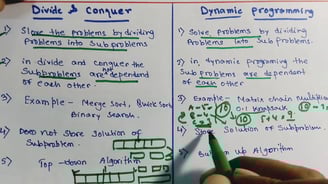 Divide & Conquer
1) Slove the problems by dividing
Problems into Subproblems
2) in divide and conquer the
Subproblems are not dependend
of each other
3) Example - Merge Sort, Quick Sort
Binary search.
4) Does not store solution of
5) Top-down Algorithm
Dynamic Programming
1) Solve Problems by dividing
Problems into Sub Problems.
2) in, Dynamic programing the
Sub Problems are dependent
of each other
3) Example - Matrix chain
0-1 knapsack
5+4=9
4) Store Solution of Subproblem.
5) up Algorithm